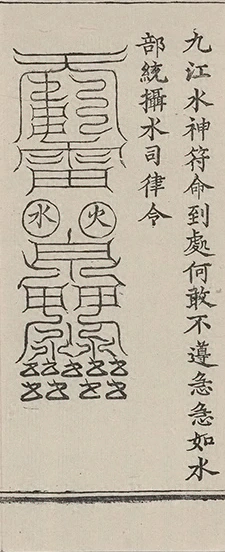 九江水神符命到處何敢不遵急急如水
部統攝水司律令
火
水